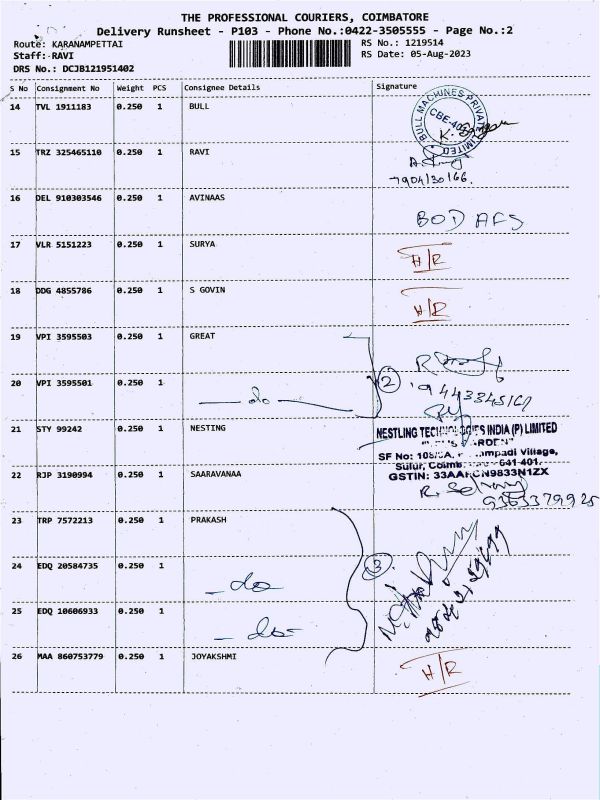 THE PROFESSIONAL COURIERS, COIMBATORE
Delivery Runsheet - P103 - Phone No.:0422-3505555 - Page No.:2
Route: KARANAMPETTAI RS No.: 1219514
Staff: RAVI RS Date: 05-Aug-2023
DRS No.: DCJB121951402
S No Consignment No Weight PCS Consignee Details Signature
14 TVL 1911183 0.250 1 BULL
BULL MACHINES PRIVATE LIMITED
CBE-402
15 TRZ 325465110 0.250 1 RAVI
7904130166.
16 DEL 910303546 0.250 1 AVINAAS
BOD AFS
17 VLR 5151223 0.250 1 SURYA H/R
18 DDG 4855786 0.250 1 S GOVIN H/R
19 VPI 3595503 0.250 1 GREAT
20 VPI 3595501 0.250 1
— do — 2
21 STY 99242 0.250 1 NESTING
NESTLING TECHNOLOGIES INDIA (P) LIMITED
SF No: 108/
Sulur, 641-401.
GSTIN: 33AAFCN9833N1ZX
22 RJP 3190994 0.250 1 SAARAVANAA
9363379925
23 TRP 7572213 0.250 1 PRAKASH
24 EDQ 20584735 0.250 1 3
— do
25 EDQ 10606933 0.250 1
— do-
26 MAA 860753779 0.250 1 JOYAKSHMI H/R